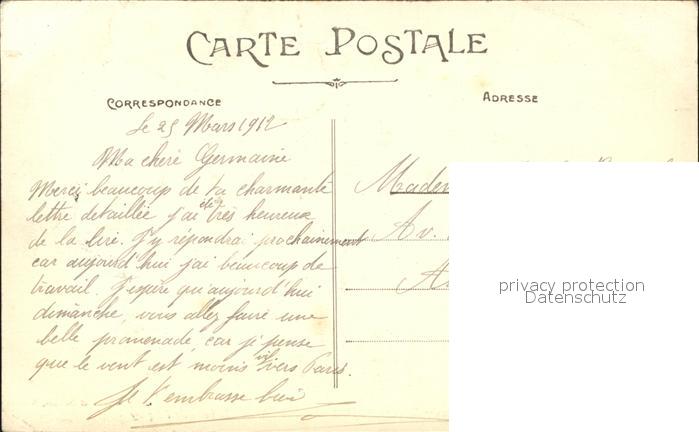 CARTE POSTALE
CORRESPONDANCE
ADRESSE
Le 25 Mars 1912
Ma chère Germaine
Merci beaucoup de ta charmante
lettre detaillée j'ai été très heureux
de la lire. J'y répondrai prochainement
car aujourd'hui j'ai beaucoup de
travail. J'espère qu'aujourd'hui
dimanche, vous allez faire une
belle promenade, car je pense
que le vent est moins vif vers Paris.
Je t'embrasse bien
Madem
Av.
privacy protection
Datenschutz